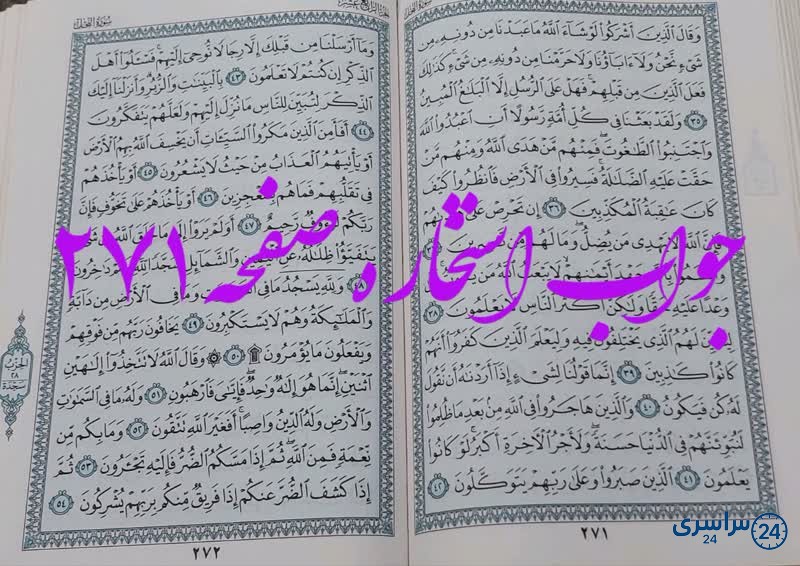 وَقَالَ ٱلَّذِينَ أَشۡرَكُواْ لَوۡ شَآءَ ٱللَّهُ مَا عَبَدۡنَا مِن دُونِهِۦ مِن
شَيۡءٖ نَّحۡنُ وَلَآ ءَابَآؤُنَا وَلَا حَرَّمۡنَا مِن دُونِهِۦ مِن شَيۡءٖۚ كَذَٰلِكَ
فَعَلَ ٱلَّذِينَ مِن قَبۡلِهِمۡۚ فَهَلۡ عَلَى ٱلرُّسُلِ إِلَّا ٱلۡبَلَٰغُ ٱلۡمُبِينُ
٣٥ وَلَقَدۡ بَعَثۡنَا فِي كُلِّ أُمَّةٖ رَّسُولًا أَنِ ٱعۡبُدُواْ ٱللَّهَ
وَٱجۡتَنِبُواْ ٱلطَّٰغُوتَۖ فَمِنۡهُم مَّنۡ هَدَى ٱللَّهُ وَمِنۡهُم مَّنۡ
حَقَّتۡ عَلَيۡهِ ٱلضَّلَٰلَةُۚ فَسِيرُواْ فِي ٱلۡأَرۡضِ فَٱنظُرُواْ كَيۡفَ
كَانَ عَٰقِبَةُ ٱلۡمُكَذِّبِينَ ٣٦ إِن تَحۡرِصۡ عَلَىٰ
ٱللَّهَ لَا يَهۡدِي مَن يُضِلُّۖ وَمَا لَهُم مِّن
جَهۡدَ أَيۡمَٰنِهِمۡ لَا يَبۡعَثُ ٱللَّهُ مَن
وَعۡدًا عَلَيۡهِ حَقّٗا وَلَٰكِنَّ أَكۡثَرَ ٱلنَّاسِ لَا يَعۡلَمُونَ ٣٨
لَهُمُ ٱلَّذِي يَخۡتَلِفُونَ فِيهِ وَلِيَعۡلَمَ ٱلَّذِينَ كَفَرُوٓاْ أَنَّهُمۡ
كَانُواْ كَٰذِبِينَ ٣٩ إِنَّمَا قَوۡلُنَا لِشَيۡءٍ إِذَآ أَرَدۡنَٰهُ أَن نَّقُولَ
لَهُۥ كُن فَيَكُونُ ٤٠ وَٱلَّذِينَ هَاجَرُواْ فِي ٱللَّهِ مِنۢ بَعۡدِ مَا ظُلِمُواْ
لَنُبَوِّئَنَّهُمۡ فِي ٱلدُّنۡيَا حَسَنَةٗۖ وَلَأَجۡرُ ٱلۡأٓخِرَةِ أَكۡبَرُۚ لَوۡ كَانُواْ
يَعۡلَمُونَ ٤١ ٱلَّذِينَ صَبَرُواْ وَعَلَىٰ رَبِّهِمۡ يَتَوَكَّلُونَ ٤٢
٢٧١
سُورَةُ النَّحۡل
وَمَآ أَرۡسَلۡنَا مِن قَبۡلِكَ إِلَّا رِجَالٗا نُّوحِيٓ إِلَيۡهِمۡۖ فَسۡـَٔلُوٓاْ أَهۡلَ
ٱلذِّكۡرِ إِن كُنتُمۡ لَا تَعۡلَمُونَ ٤٣ بِٱلۡبَيِّنَٰتِ وَٱلزُّبُرِۗ وَأَنزَلۡنَآ إِلَيۡكَ
ٱلذِّكۡرَ لِتُبَيِّنَ لِلنَّاسِ مَا نُزِّلَ إِلَيۡهِمۡ وَلَعَلَّهُمۡ يَتَفَكَّرُونَ
٤٤ أَفَأَمِنَ ٱلَّذِينَ مَكَرُواْ ٱلسَّيِّـَٔاتِ أَن يَخۡسِفَ ٱللَّهُ بِهِمُ ٱلۡأَرۡضَ
أَوۡ يَأۡتِيَهُمُ ٱلۡعَذَابُ مِنۡ حَيۡثُ لَا يَشۡعُرُونَ ٤٥ أَوۡ يَأۡخُذَهُمۡ
فِي تَقَلُّبِهِمۡ فَمَا هُم بِمُعۡجِزِينَ ٤٦ أَوۡ يَأۡخُذَهُمۡ عَلَىٰ تَخَوُّفٖ فَإِنَّ
رَبَّكُمۡ لَرَءُوفٞ رَّحِيمٌ ٤٧ أَوَلَمۡ يَرَوۡاْ إِلَىٰ مَا خَلَقَ ٱللَّهُ مِن
يَتَفَيَّؤُاْ ظِلَٰلُهُۥ عَنِ ٱلۡيَمِينِ وَٱلشَّمَآئِلِ سُجَّدٗا لِّلَّهِ دَٰخِرُونَ
٤٨ وَلِلَّهِۤ يَسۡجُدُۤ مَا فِي وَمَا فِي ٱلۡأَرۡضِ مِن دَآبَّةٖ
وَٱلۡمَلَٰٓئِكَةُ وَهُمۡ لَا يَسۡتَكۡبِرُونَ ٤٩ يَخَافُونَ رَبَّهُم مِّن فَوۡقِهِمۡ
وَيَفۡعَلُونَ مَا يُؤۡمَرُونَ ۩ ٥٠ ۞ وَقَالَ ٱللَّهُ لَا تَتَّخِذُوٓاْ إِلَٰهَيۡنِ
ٱثۡنَيۡنِۖ إِنَّمَا هُوَ إِلَٰهٞ وَٰحِدٞ فَإِيَّٰيَ فَٱرۡهَبُونِ ٥١ وَلَهُۥ مَا فِي ٱلسَّمَٰوَٰتِ
وَٱلۡأَرۡضِ وَلَهُ ٱلدِّينُ وَاصِبًاۚ أَفَغَيۡرَ ٱللَّهِ تَتَّقُونَ ٥٢ وَمَا بِكُم مِّن
نِّعۡمَةٖ فَمِنَ ٱللَّهِۖ ثُمَّ إِذَا مَسَّكُمُ ٱلضُّرُّ فَإِلَيۡهِ تَجۡـَٔرُونَ ٥٣ ثُمَّ
إِذَا كَشَفَ ٱلضُّرَّ عَنكُمۡ إِذَا فَرِيقٞ مِّنكُم بِرَبِّهِمۡ يُشۡرِكُونَ ٥٤
٢٧٢
الحزب
٢٨
سجدة
جواب استخاره صفحه ۲۷۱
سراسری
24
24